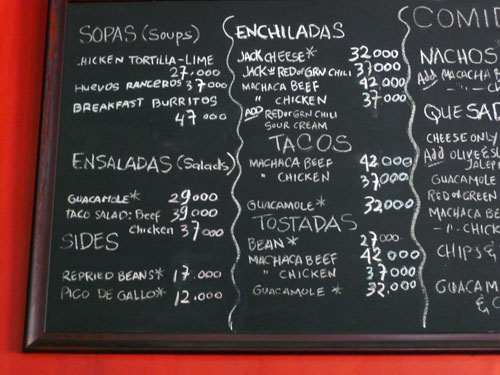 SOPAS (Soups)
CHICKEN TORTILLA-LIME
27.000
HUEVOS RANCEROS 37000
BREAKFAST BURRITOS
47 000
ENSALADAS (Salads)
GUACAMOLE* 29000
TACO SALAD: Beef 39 000
Chicken 37 000
SIDES
REPRIED BEANS* 17.000
PICO DE GALLO* 12.000
ENCHILADAS
JACK CHEESE* 32000
JACK W RED OR GRN CHILI 37000
MACHACA BEEF 42.000
" CHICKEN 37000
ADD RED OR GRN CHILI
SOUR CREAM
TACOS
MACHACA BEEF 42.000
" CHICKEN 37000
GUICAMOLE* 32000
TOSTADAS
BEAN* 27000
MACHACA BEEF 42 000
" CHICKEN 37000
GUACAMOLE * 32.000
COMI
NACHOS
Add MACACHA
" CHICKEN
QUESAD
CHEESE ONLY
Add OLIVE & S
JALEP
GUACAMOLE
RED OR GREEN
MACHACA BE
-"- CHICK
CHIPS &
GUACAM
&